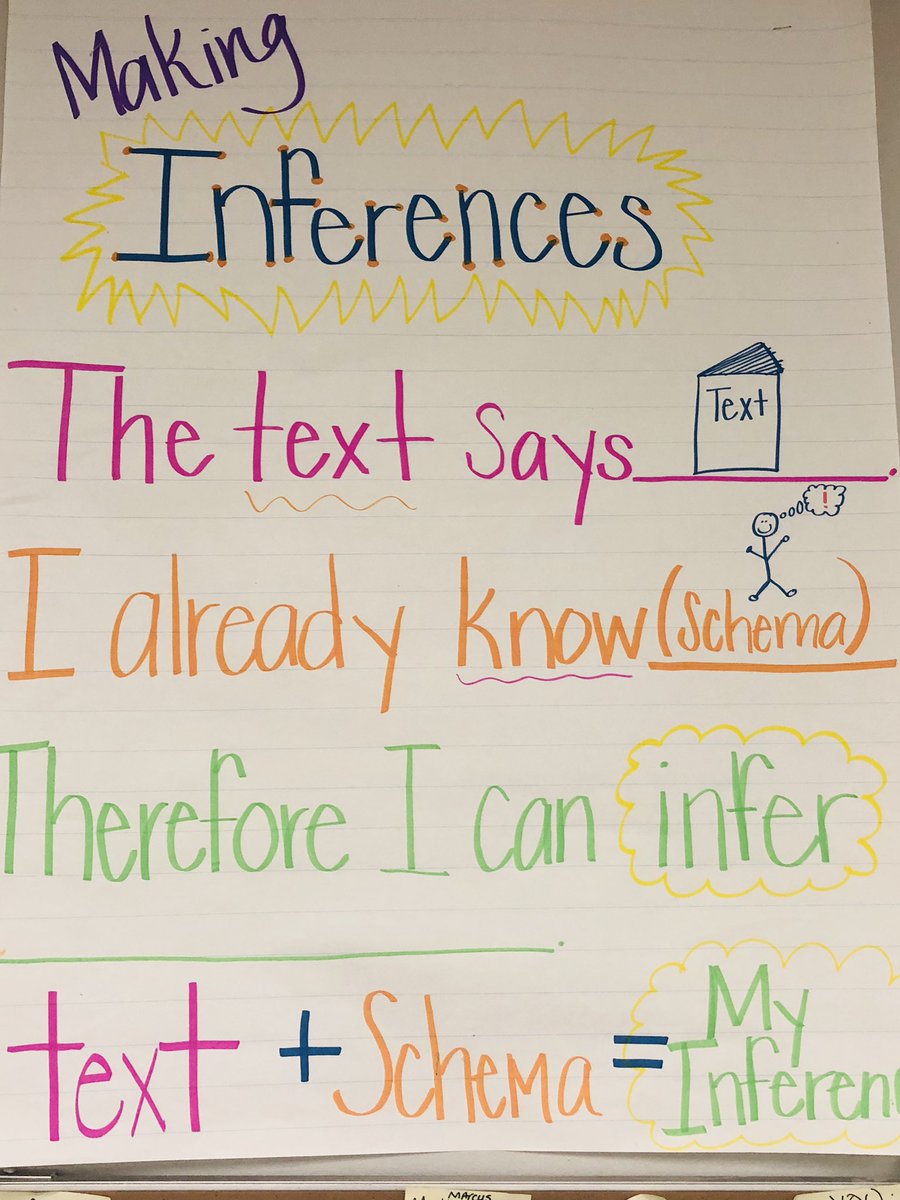 Making
Inferences
Text
The text says ______.
!
I already know (Schema)
Therefore I can infer
______.
text + Schema = My
Inferen
MARCUS